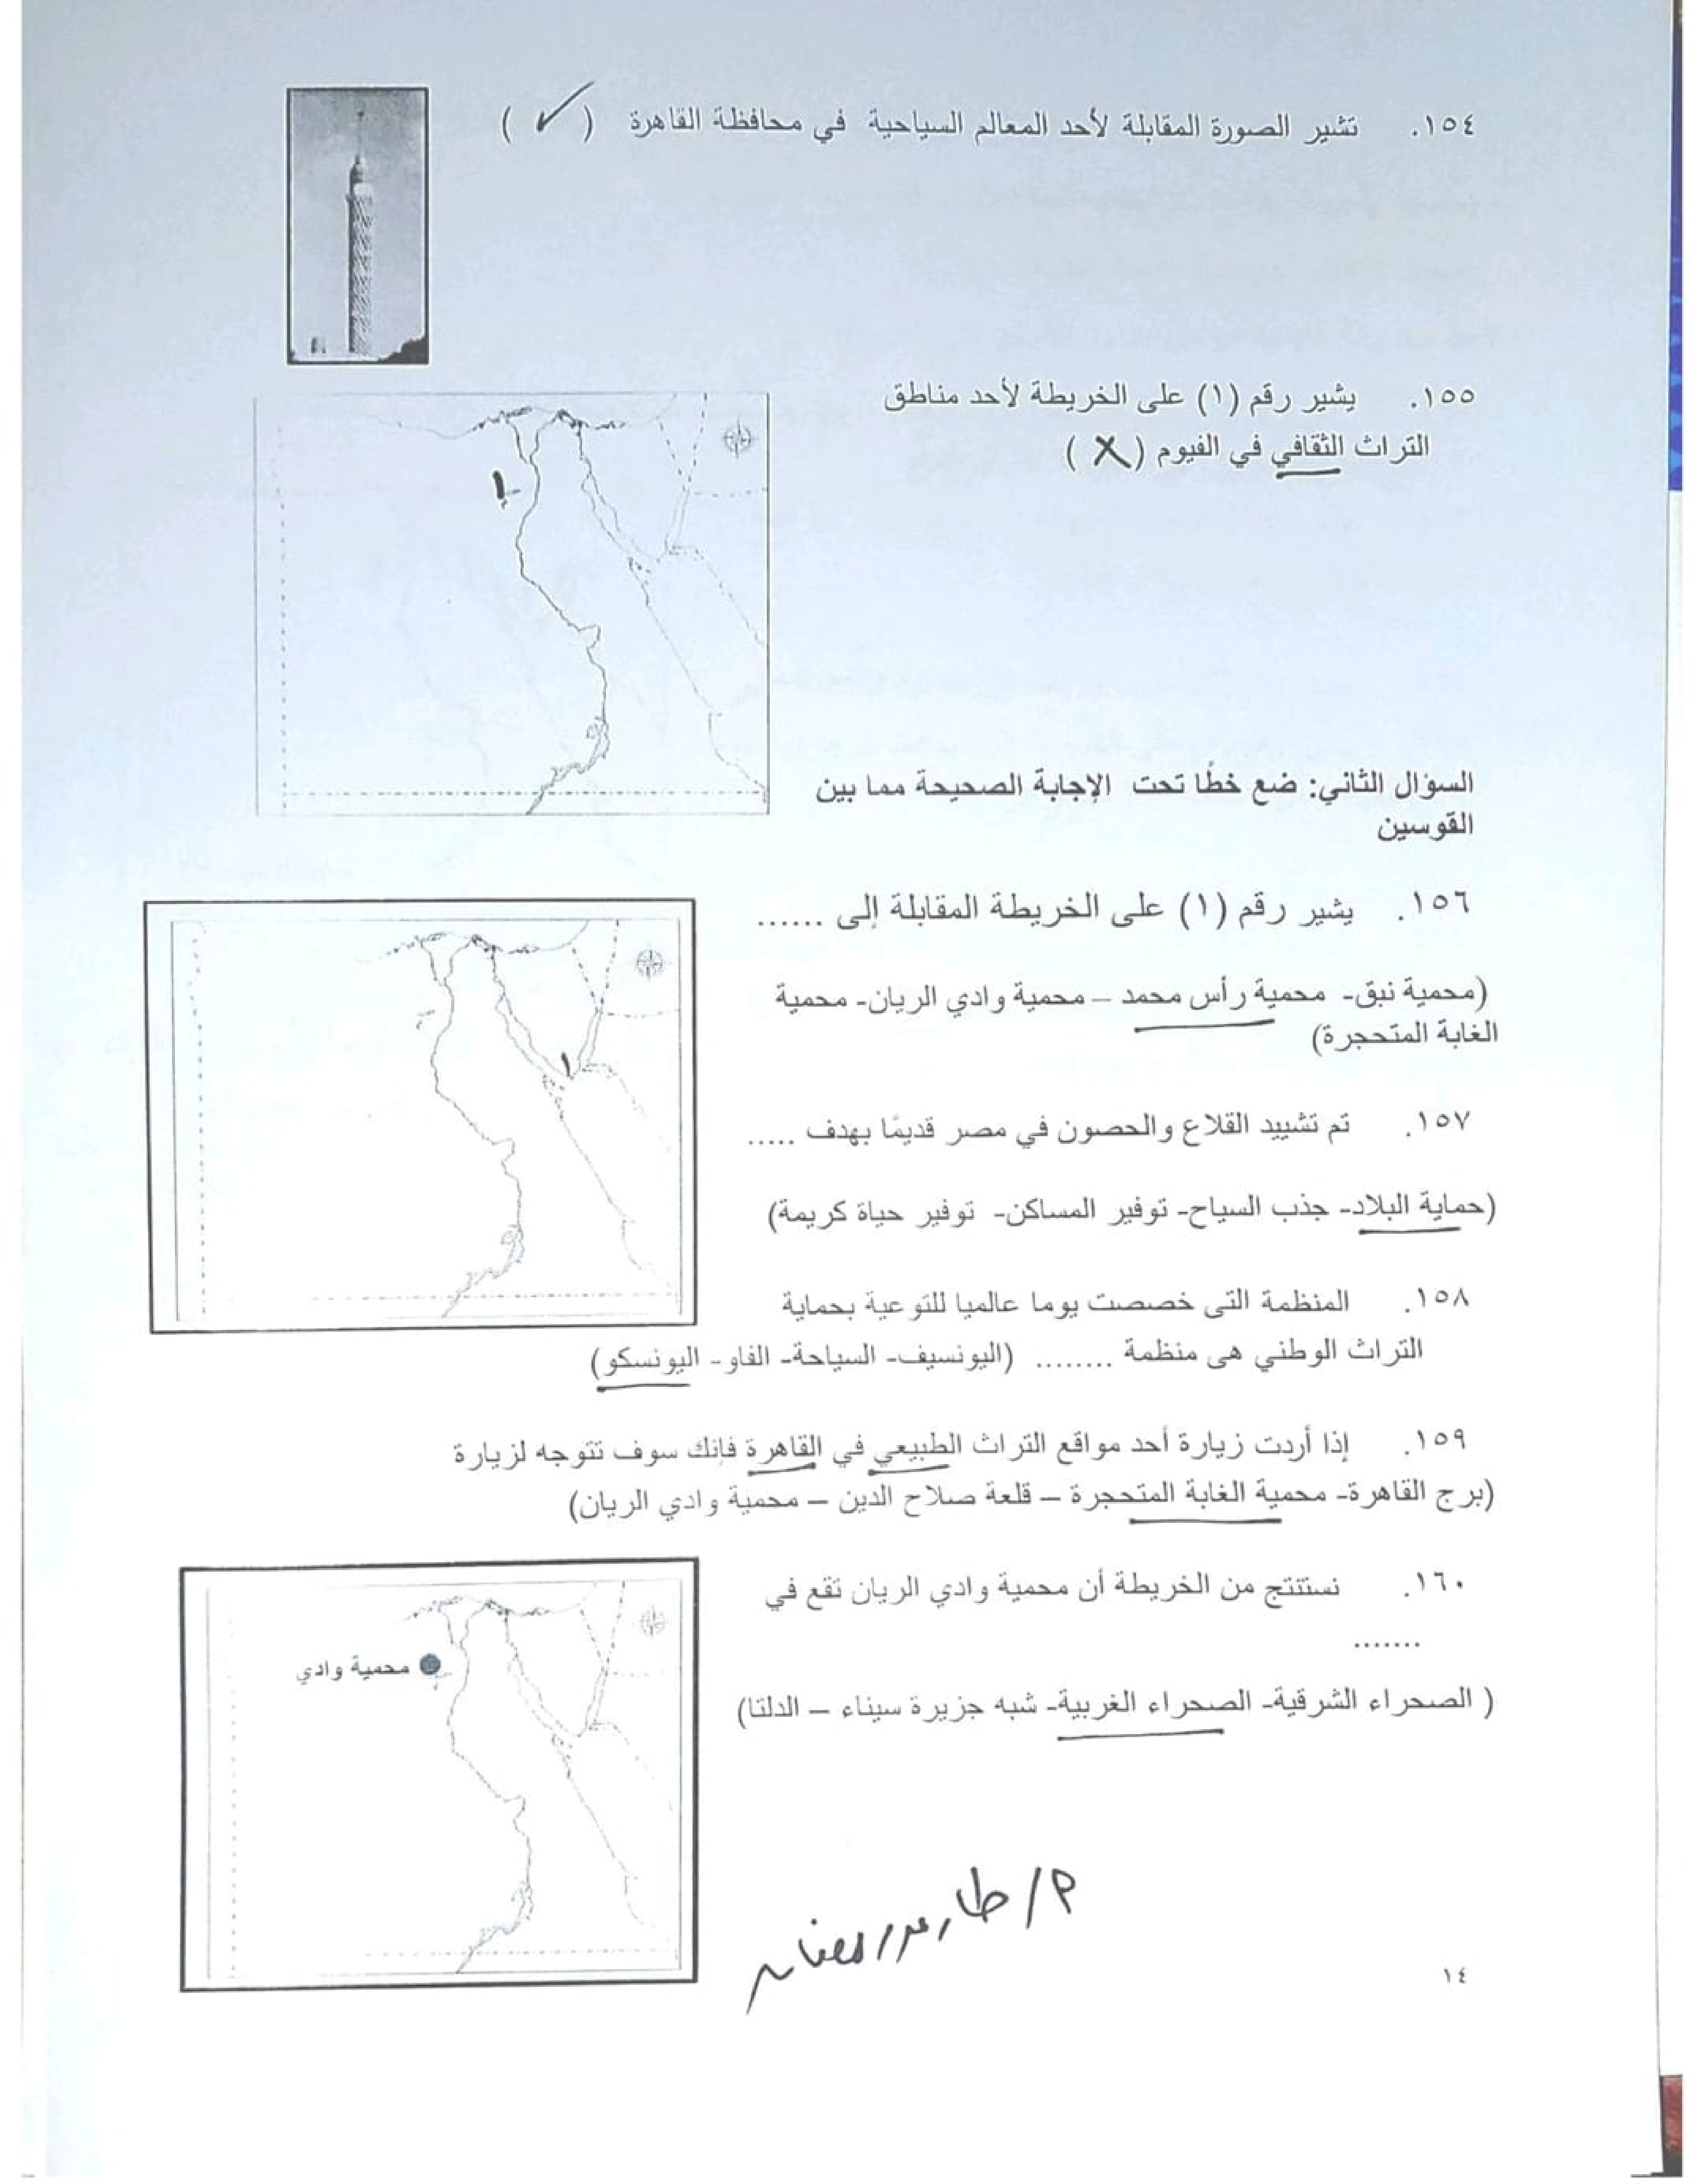 ١٥٤. تشير الصورة المقابلة لأحد المعالم السياحية في محافظة القاهرة ( ✓ )
١٥٥. يشير رقم (١) على الخريطة لأحد مناطق
التراث الثقافي في الفيوم ( X )
١
السؤال الثاني: ضع خطًا تحت الإجابة الصحيحة مما بين
القوسين
١٥٦. يشير رقم (١) على الخريطة المقابلة إلى ......
(محمية نبق- محمية رأس محمد – محمية وادي الريان- محمية
الغابة المتحجرة)
١
١٥٧. تم تشييد القلاع والحصون في مصر قديمًا بهدف .....
(حماية البلاد- جذب السياح- توفير المساكن- توفير حياة كريمة)
١٥٨. المنظمة التى خصصت يوما عالميا للتوعية بحماية
التراث الوطني هى منظمة ........ (اليونسيف- السياحة- الفاو- اليونسكو)
١٥٩. إذا أردت زيارة أحد مواقع التراث الطبيعي في القاهرة فإنك سوف تتوجه لزيارة
(برج القاهرة- محمية الغابة المتحجرة – قلعة صلاح الدين – محمية وادي الريان)
١٦٠. نستنتج من الخريطة أن محمية وادي الريان تقع في
.......
محمية وادي
( الصحراء الشرقية- الصحراء الغربية- شبه جزيرة سيناء – الدلتا)
١٤